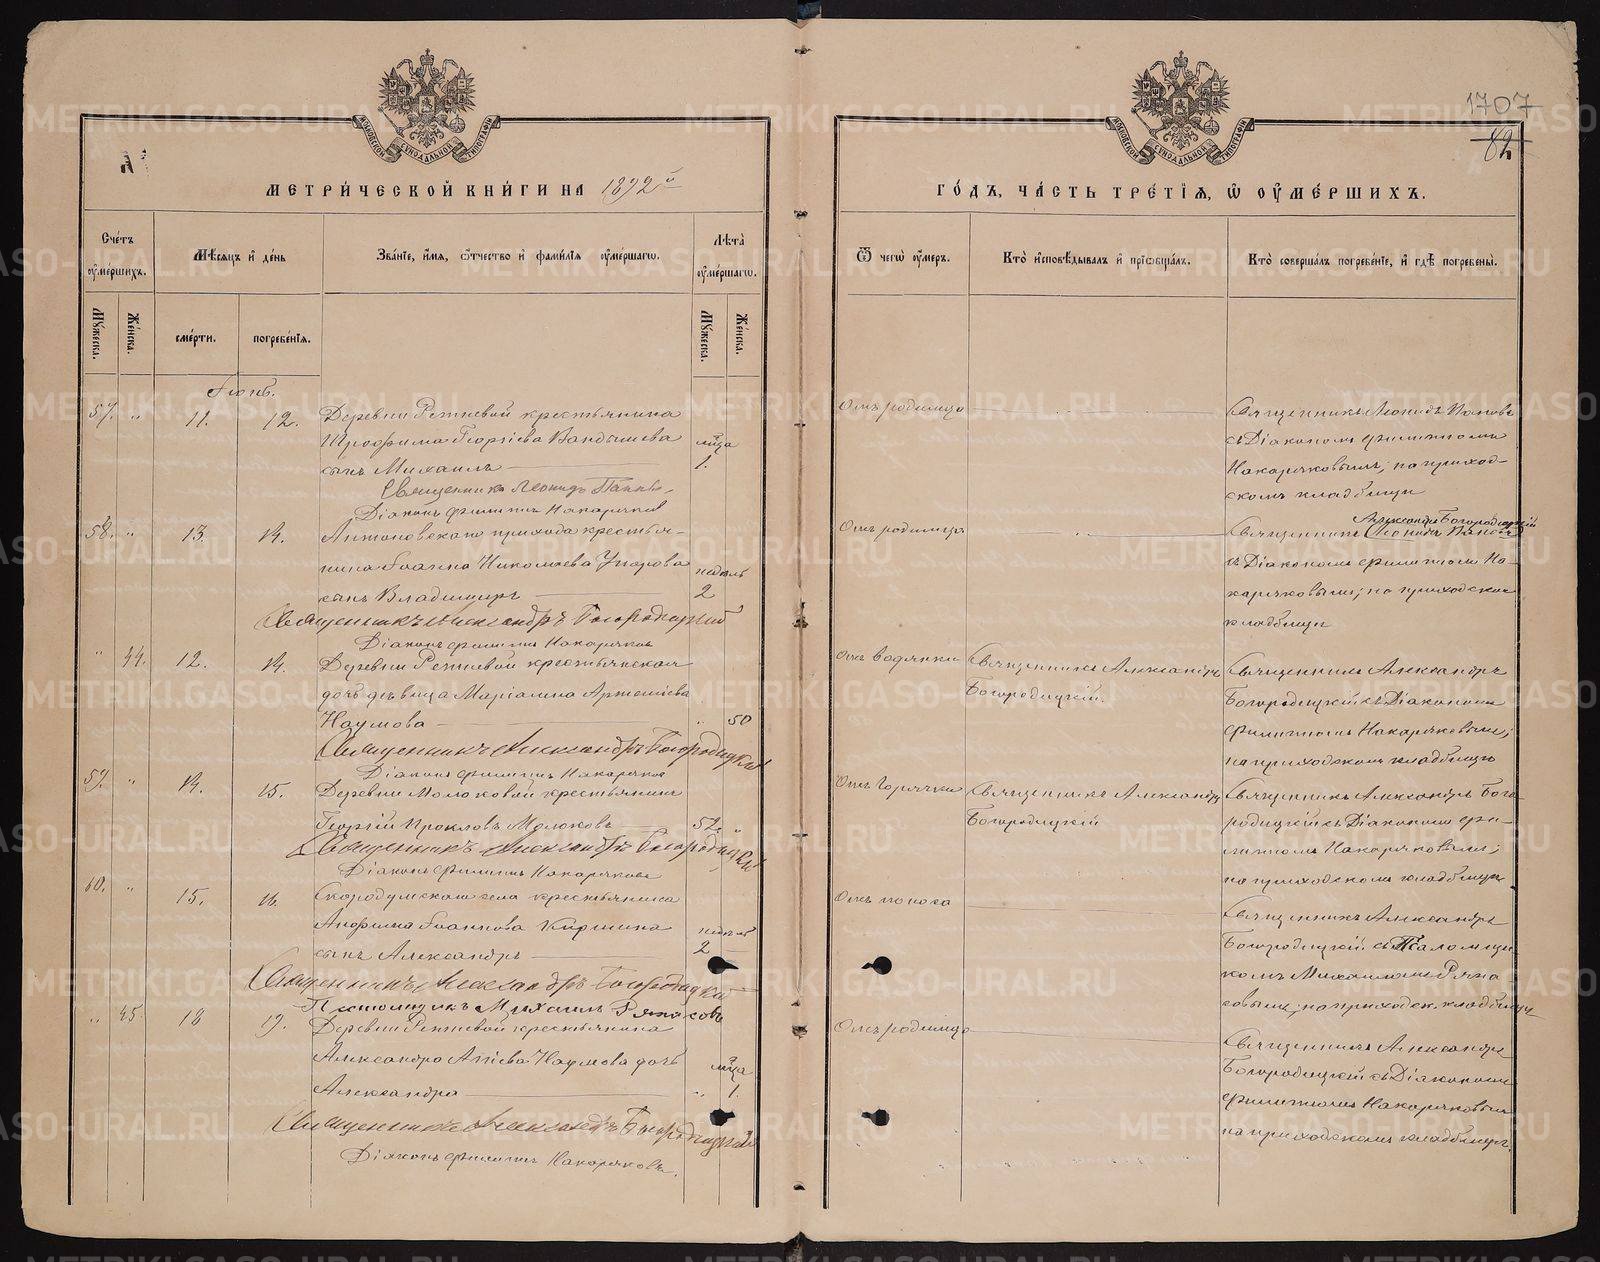 1707
82
МОСКОВСКОЙ СУНОДАЛЬНОЙ ТИПОГРАФІИ
МОСКОВСКОЙ СУНОДАЛЬНОЙ ТИПОГРАФІИ
МЕТРИ́ЧЕСКОЙ КНИ́ГИ НА 1892й
ГО́ДЪ, ЧА́СТЬ ТРЕ́ТІѦ, Ѡ ОУМЕ́РШИХЪ.
Сче́тъ оуме́ршихъ.
Мѣ́сяцъ и де́нь
Зва́нїе, и́мѧ, ѻ́тчество и фами́лїѧ оуме́ршагѡ.
Лѣ́та оуме́ршагѡ.
Ѿ чегѡ̀ оу́меръ.
Кто̀ исповѣ́дывалъ и прїѡбща́лъ.
Кто̀ соверша́лъ погребе́нїе, и гдѣ̀ погребены̀.
Му́жеска.
Же́нска.
сме́рти.
погребе́нїѧ.
Му́жеска.
Же́нска.
Іюнь.
57. " 11. 12. Деревни Ретневой крестьянина
Трофима Георгіева Вандышева
сынъ Михаилъ
мца
1.
Священникъ Леонидъ Поповъ
Діаконъ Филиппъ Накаряковъ
Отъ родимца
Священникъ Леонидъ Поповъ
съ Діакономъ Филиппомъ
Накаряковымъ; на приход-
скомъ кладбищѣ
58. " 13. 14. Антоновскаго прихода крестья-
нина Іоанна Николаева Упорова
сынъ Владиміръ
недѣль
2
Священникъ Александръ Богородицкій
Діаконъ Филиппъ Накаряковъ
Отъ родимца
Александръ Богородицкій
Священникъ Леонидъ Поповъ
съ Діакономъ Филиппомъ На-
каряковымъ; на приходском
кладбищѣ
" 44. 12. 14. Деревни Ретневой крестьянская
дочь девица Маріамна Артеміева
Наумова
" 50
Священникъ Александръ Богородицкій
Діаконъ Филиппъ Накаряковъ
Отъ водянки
Священникъ Александръ
Богородицкій.
Священникъ Александръ
Богородицкій съ Діакономъ
Филиппомъ Накаряковымъ;
на приходскомъ кладбищѣ
59. " 14. 15. Деревни Молоковой крестьянинъ
Георгій Прокловъ Молоковъ
52. "
Священникъ Александръ Богородицкій
Діаконъ Филиппъ Накаряковъ
Отъ горячки
Священникъ Александръ
Богородицкій
Священникъ Александръ Бого-
родицкій съ Діакономъ Фи-
липпомъ Накаряковымъ;
на приходскомъ кладбищѣ
60. " 15. 16. Скородумскаго села крестьянина
Анфима Іоаннова Киршина
сынъ Александръ
недѣль
2
Священникъ Александръ Богородицкій
Псаломщикъ Михаилъ Ряпасовъ
Отъ поноса
Священникъ Александръ
Богородицкій съ Псаломщи-
комъ Михаиломъ Ряпа-
совымъ; на приходск. кладбищѣ
" 45. 18 19. Деревни Ретневой крестьянина
Александра Апіева Наумова дочь
Александра
мца
" 1.
Священникъ Александръ Богородицкій
Діаконъ Филиппъ Накаряковъ.
Отъ родимца
Священникъ Александръ
Богородицкій съ Діакономъ
Филиппомъ Накаряковымъ
на приходскомъ кладбищѣ.
METRIKI.GASO-URAL.RU